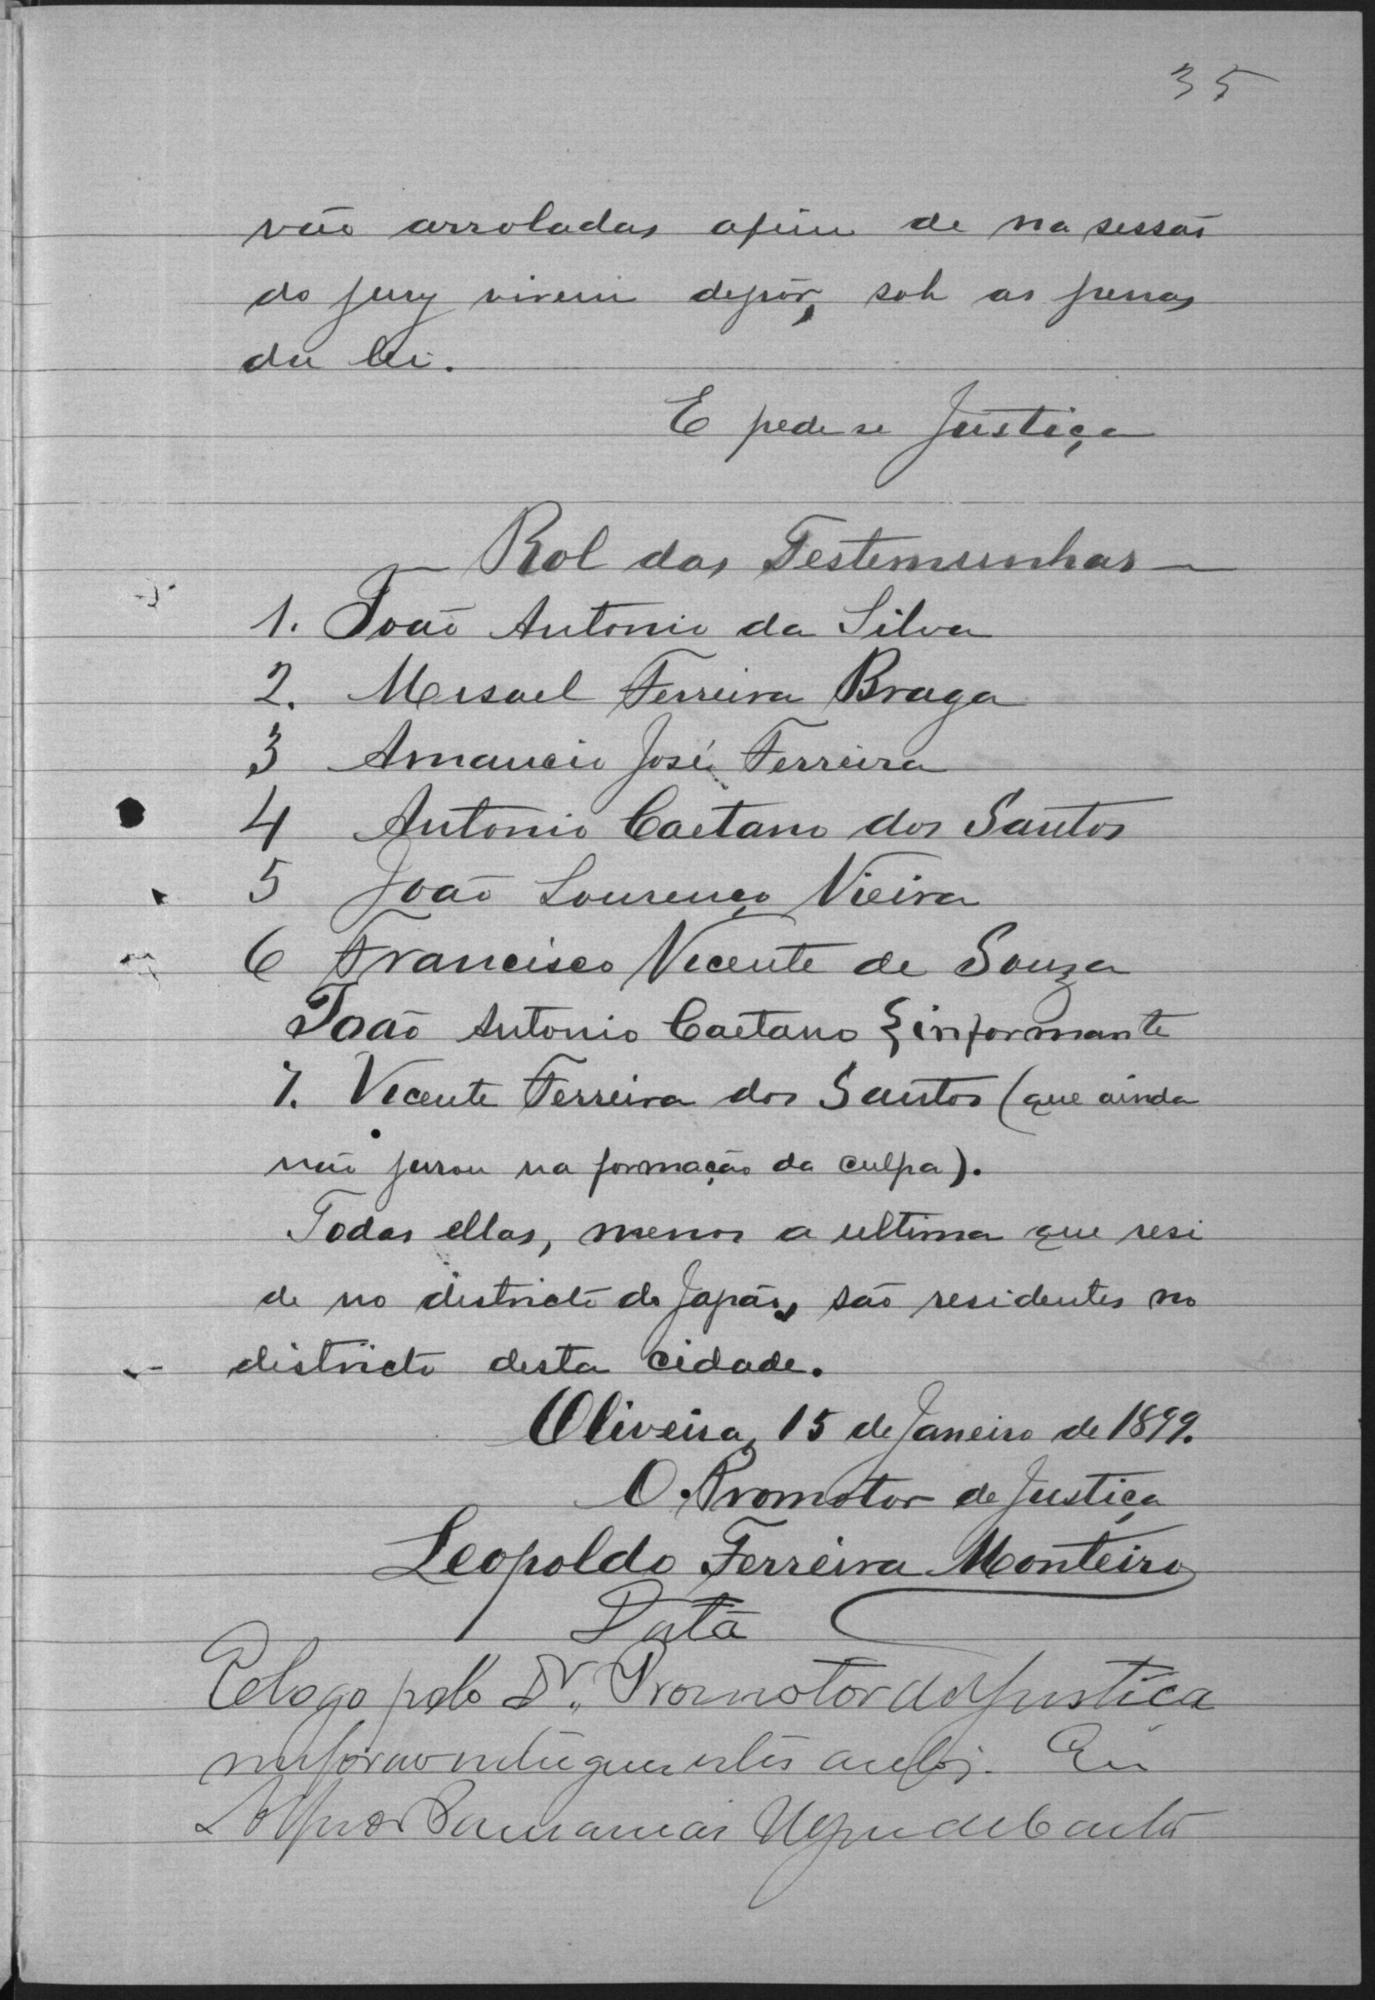 35
vão arroladas afim de na sessão
do jury virem depôr, sob as penas
da lei.
E pede se Justiça
— Rol das Testemunhas —
1. João Antonio da Silva
2. Misael Ferreira Braga
3 Amancio José Ferreira
4 Antonio Caetano dos Santos
5 João Lourenço Vieira
6 Francisco Vicente de Souza
João Antonio Caetano } informante
7. Vicente Ferreira dos Santos (que ainda
não jurou na formação da culpa).
Todas ellas, menos a ultima que resi
de no districto do Japão, são residentes no
districto desta cidade.
Oliveira, 15 de Janeiro de 1899.
O Promotor de Justiça
Leopoldo Ferreira Monteiro
Data
E logo pelo Dr. Promotor de Justiça
me forão entregues estes autos. Eu